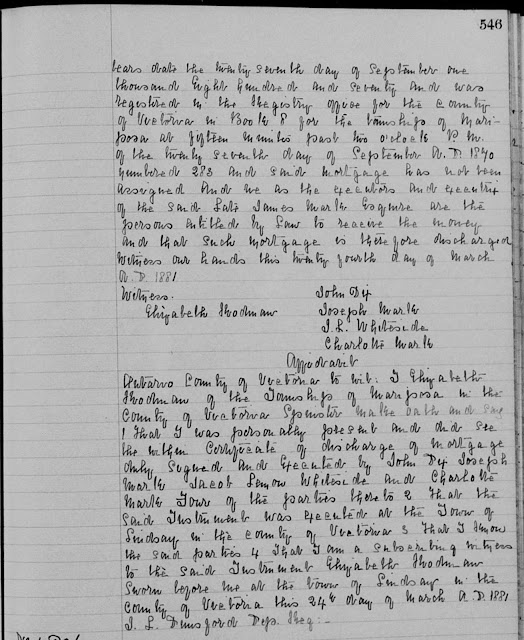 546
bears date the twenty seventh day of September one
thousand Eight hundred and seventy and was
registered in the Registry office for the County
of Victoria in Book 8 for the townships of Mari-
posa at fifteen minutes past two o'clock P.M.
of the twenty seventh day of September A.D. 1870
numbered 283 and said mortgage has not been
assigned And we as the executors and executrix
of the said Late James Mark Esquire are the
persons entitled by Law to receive the money
and that such mortgage is therefore discharged
Witness our hands this twenty fourth day of March
A.D. 1881
Witness. John Dix
Elizabeth Rodman Joseph Mark
J. L. Whiteside
Charlotte Mark
Affidavit
Ontario County of Victoria to wit: I Elizabeth
Rodman of the Township of Mariposa in the
County of Victoria Spinster make oath and say
1 That I was personally present and did see
the within Certificate of discharge of Mortgage
duly Signed and Executed by John Dix Joseph
Mark Jacob Whiteside and Charlotte
Mark Four of the parties thereto 2 That the
said Instrument was executed at the Town of
Lindsay in the County of Victoria 3 That I know
the said parties 4 That I am a subscribing witness
to the said Instrument Elizabeth Rodman
Sworn before me at the town of Lindsay in the
County of Victoria this 24th day of March A.D. 1881
J. L. Dunsford Dep. Reg:-